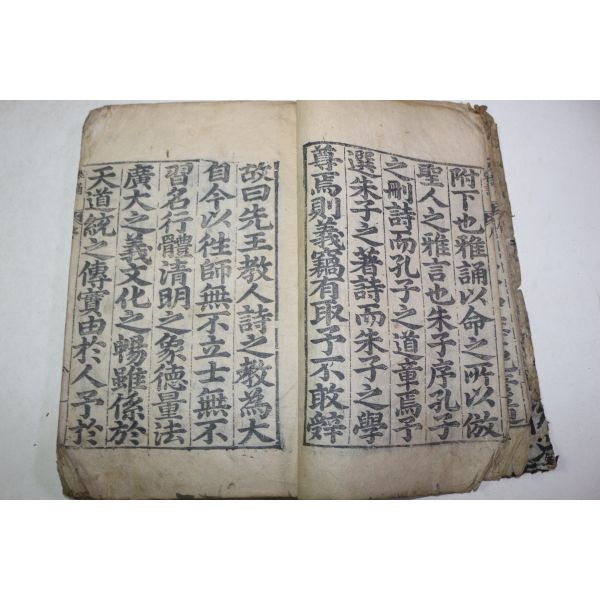 附下也雅誦以命之所以倣
聖人之雅言也朱子序孔子
之刪詩而孔子之道章焉予
選朱子之著詩而朱子之學
尊焉則義竊有取予不敢辭
故曰先王敎人詩之敎為大
自今以徃師無不立士無不
習名行體清明之象德量法
廣大之義文化之暢雖係於
天道統之傳實由於人予於